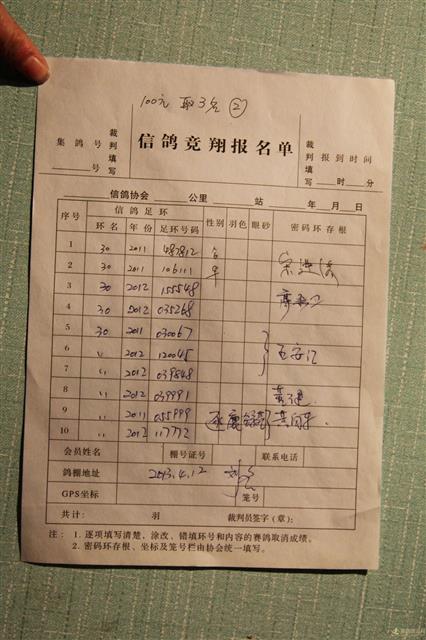 100元 取3名 ②
集鸽号 裁判填写 信鸽竞翔报名单 裁判填写 报到时间
号 时 分
信鸽协会 公里 站 年 月 日
序号 信鸽足环 性别 羽色 眼砂 密码环存根
环名 年份 足环号码
1 30 2011 487812
2 30 2011 106111
3 30 2012 155548
4 30 2012 035268
5 30 2011 030067
6 〃 2012 120045
7 〃 2012 039848
8 〃 2012 039991
9 〃 2011 055999
10 〃 2012 117772
会员姓名 棚号证号 联系电话
鸽棚地址 2013.4.12
GPS坐标 笼号
共计: 羽 裁判员签字(章):
注: 1. 逐项填写清楚,涂改、错填环号和内容的赛鸽取消成绩。
2. 密码环存根、坐标及笼号栏由协会统一填写。